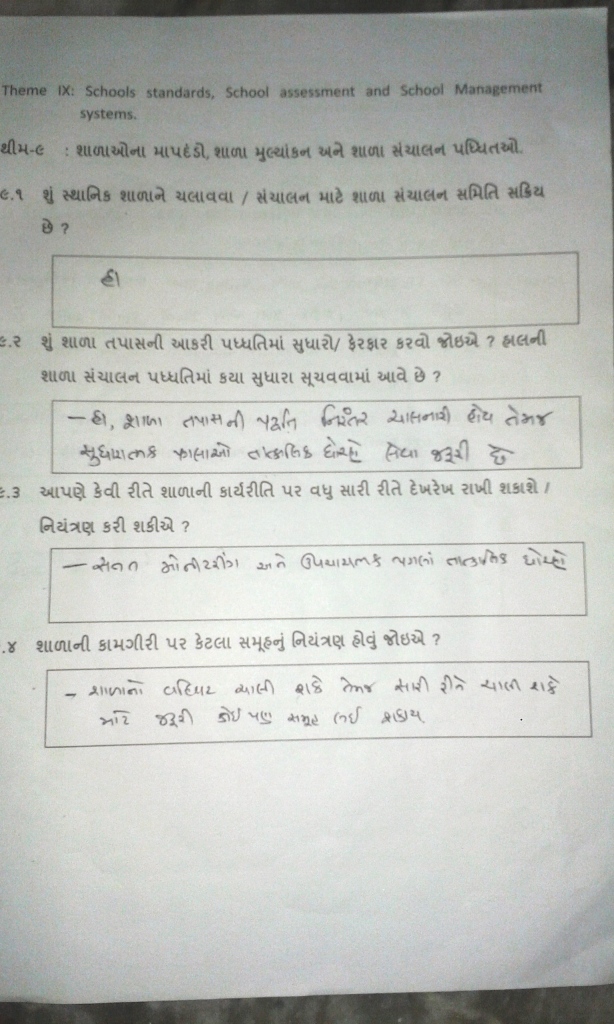 Theme IX: Schools standards, School assessment and School Management
systems.
થીમ-૯ : શાળાઓના માપદંડો, શાળા મુલ્યાંકન અને શાળા સંચાલન પધ્ધિતઓ.
૯.૧ શું સ્થાનિક શાળાને ચલાવવા / સંચાલન માટે શાળા સંચાલન સમિતિ સક્રિય
છે ?
હા
૯.૨ શું શાળા તપાસની આકરી પધ્ધતિમાં સુધારો/ ફેરફાર કરવો જોઇએ ? હાલની
શાળા સંચાલન પધ્ધતિમાં કયા સુધારા સૂચવવામાં આવે છે ?
– હા, શાળા તપાસની પદ્ધતિ નિરંતર ચાલનારી હોય તેમજ
સુધારાત્મક તાત્કાલિક લેવા જરૂરી છે
૯.૩ આપણે કેવી રીતે શાળાની કાર્યરીતિ પર વધુ સારી રીતે દેખરેખ રાખી શકાશે /
નિયંત્રણ કરી શકીએ ?
– સતત મોનીટરીંગ અને ઉપચારાત્મક પગલાં તાત્કાલિક
.૪ શાળાની કામગીરી પર કેટલા સમૂહનું નિયંત્રણ હોવું જોઇએ ?
– શાળાનો વહિવટ ચાલી શકે તેમજ સારી રીતે ચાલી શકે
માટે જરૂરી કોઈ પણ સમૂહ લઈ શકાય